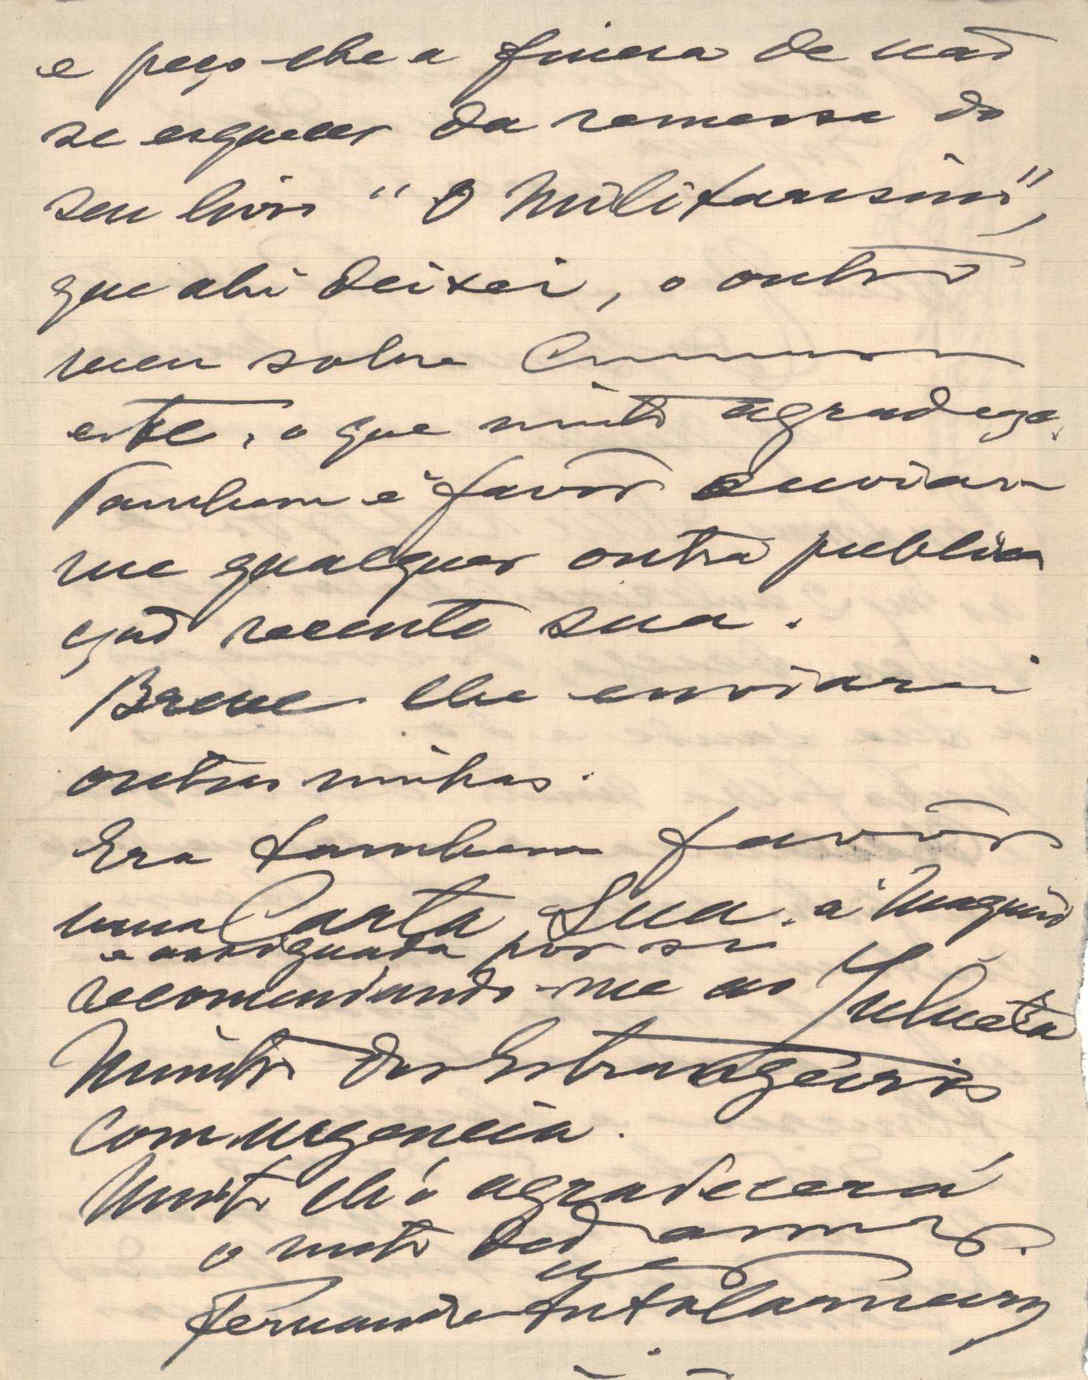 e peço-lhe a fineza de não
se esquecer da remessa do
seu livro "O Militarismo",
que ahi deixei, o outro
meu sobre
este, o que muito agradeço.
Tambem é favor enviar-
me qualquer outra publica
ção recente sua.
Breve lhe enviarei
outras minhas.
Era tambem favor
uma Carta Sua. á maquina
e assignada por si
recomendando-me ao Zulueta
Ministro dos Estrangeiros
com urgencia.
Muito lh'o agradecerá
o mto ded
Fernando